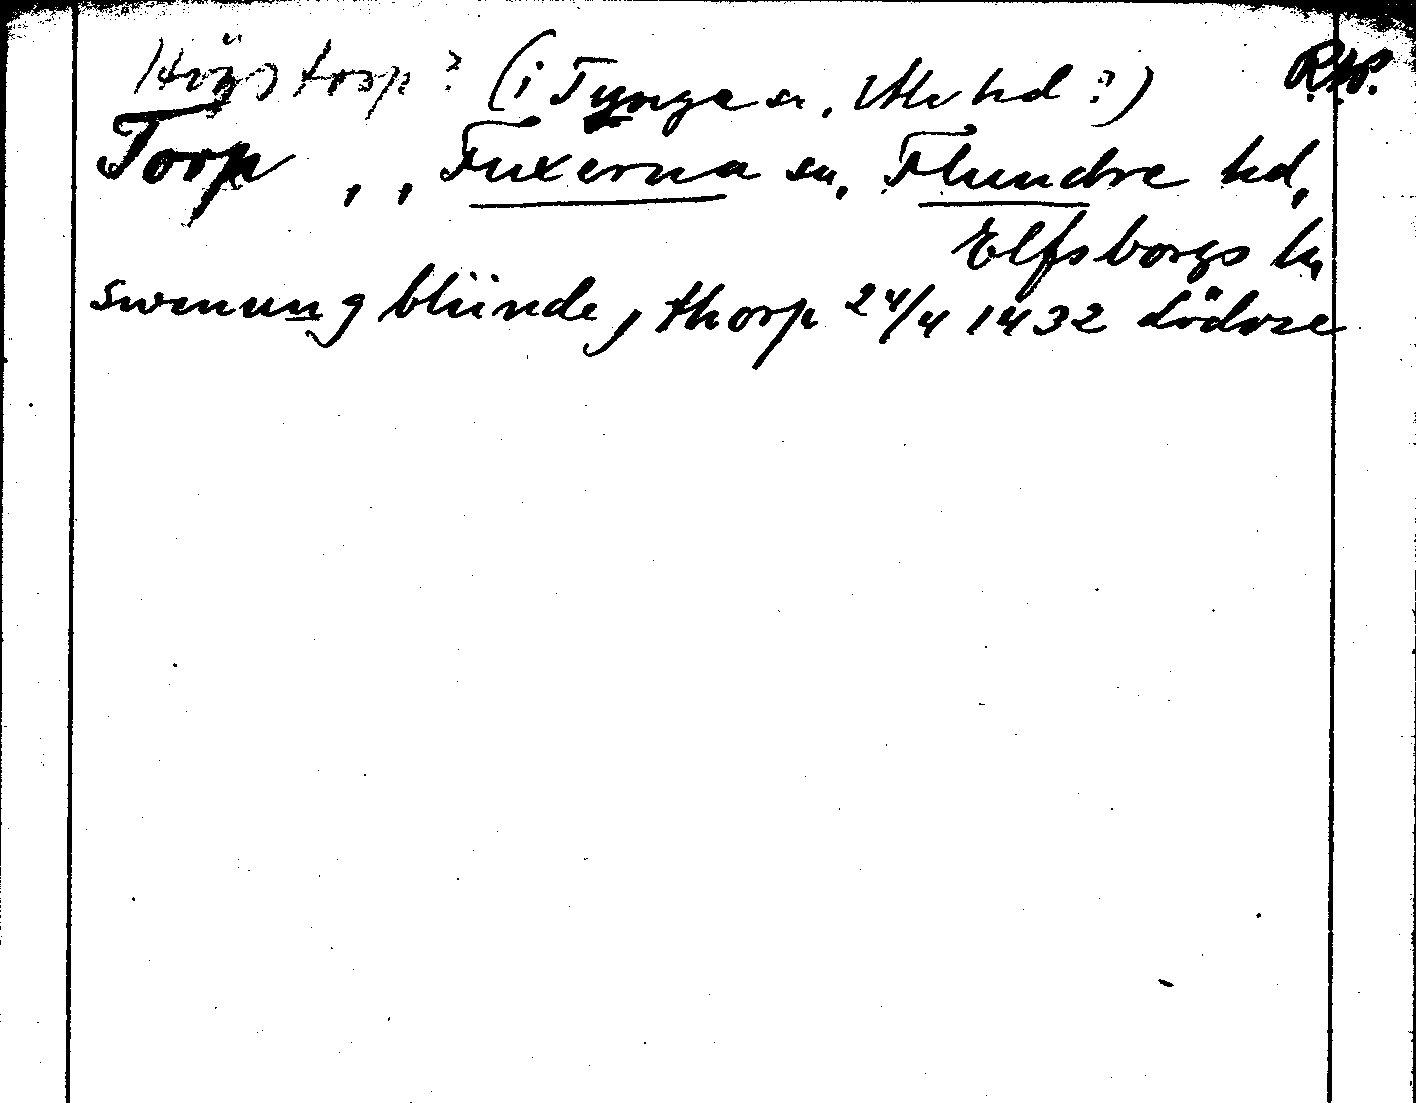 Högstorp? (i Tynge sn, Ale hd?) R.A.P.
Torp , , Fuxerna sn, Flundre hd,
Elfsborgs ln
swenung blünde, thorp 24/4 1432 lödöse